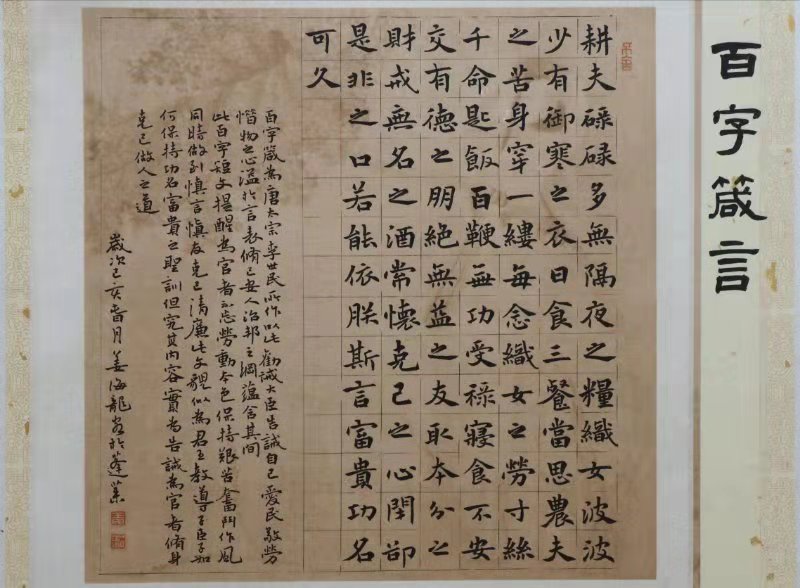 百字箴言
耕夫碌碌多無隔夜之糧織女波波
少有御寒之衣日食三餐當思農夫
之苦身穿一縷每念織女之勞寸絲
千命匙飯百鞭無功受祿寢食不安
交有德之朋絕無益之友取本分之
財戒無名之酒常懷克己之心閉卻
是非之口若能依朕斯言富貴功名
可久
百字箴為唐太宗李世民所作以此勸誡大臣告誡自己愛民敬勞
惜物之心溢於言表脩己安人治邦之綱蘊含其間
此百字短文提醒為官者不忘勞動本色保持艱苦奮鬥作風
同時做到慎言慎友克己清廉此文體似為君王教導了臣子如
何保持功名富貴之聖訓但究其內容實為告誡為官者脩身
克己做人之道
歲次己亥春月姜海龍書於蓬萊